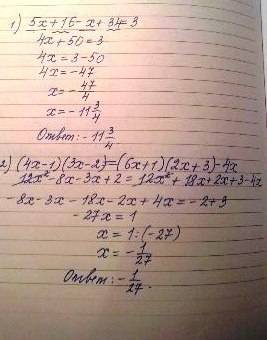 1) 5x+16-x+34=3
4x+50=3
4x=3-50
4x=-47
x=-47/4
x=-11 3/4
Ответ: -11 3/4
2) (4x-1)(3x-2)=(6x+1)(2x+3)-4x
12x²-8x-3x+2=12x²+18x+2x+3-4x
-8x-3x-18x-2x+4x=-2+3
-27x=1
x=1:(-27)
x=-1/27
Ответ: -1/27.